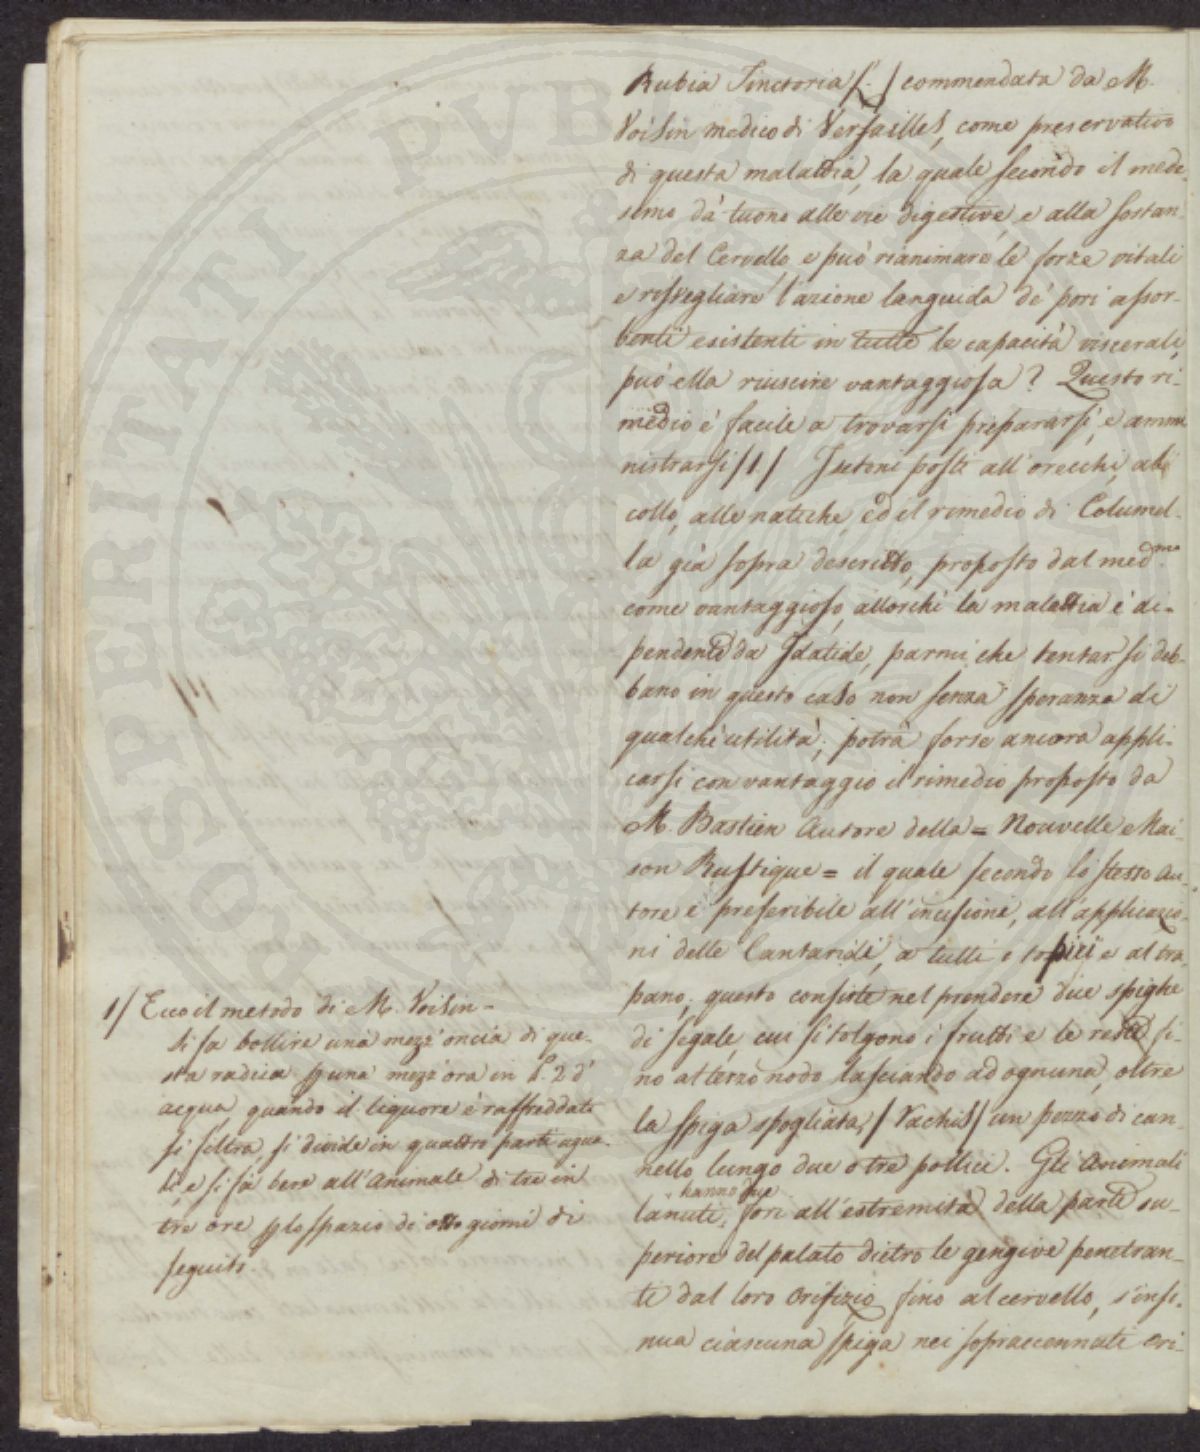 Rubia Tinctoria /. / commendata da M.
Voisin medico di Versailles, come preservativo
di questa malattia, la quale secondo il mede-
simo dà tuono alle vie digestive, e alla sostan-
za del Cervello, e può rianimare le forze vitali
e risvegliare l'azione languida de' pori assor-
benti esistenti in tutte le capacità viscerali,
può ella riuscire vantaggiosa? Questo ri-
medio è facile a trovarsi prepararsi, e ammi
nistrarsi /1/ Setoni posti all'orecchi, al
collo, alle natiche, ed il rimedio di Columel-
la già sopra descritto, proposto dal med.mo
come vantaggioso, allorchè la malattia è di-
pendente da Idatide, parmi che tentar si deb-
bano in questo caso non senza speranza di
qualche utilità; potrà forse ancora appli-
carsi con vantaggio il rimedio proposto da
M. Bastien Autore della = Nouvelle Mai-
son Rustique = il quale secondo lo stesso Au-
tore è preferibile all'incisione, all'applicazio-
ni delle Cantaridi, a tutti i topici e al tra-
pano; questo consiste nel prendere due spighe
di segale, cui si tolgono i frutti e le reste si-
no al terzo nodo lasciando ad ognuna, oltre
la spiga spogliata, / Rachis / un pezzo di can-
nello lungo due o tre pollici. Gli Animali
hanno due
lanuti, fori all'estremità della parte su-
periore del palato dietro le gengive penetran-
ti dal loro Orifizio fino al cervello, s'insi-
nua ciascuna spiga nei sopraccennati Ori-
1/ Ecco il metodo di M. Voisin -
Si fa bollire una mezz'oncia di que-
sta radica p una mezz'ora in L. 2 d'
acqua, quando il liquore è raffreddato
si filtra, si divide in quattro parti ugua-
li, e si fa bere all'Animale di tre in
tre ore p lo spazio di otto giorni di
seguito.
SPERITATI PUBLI